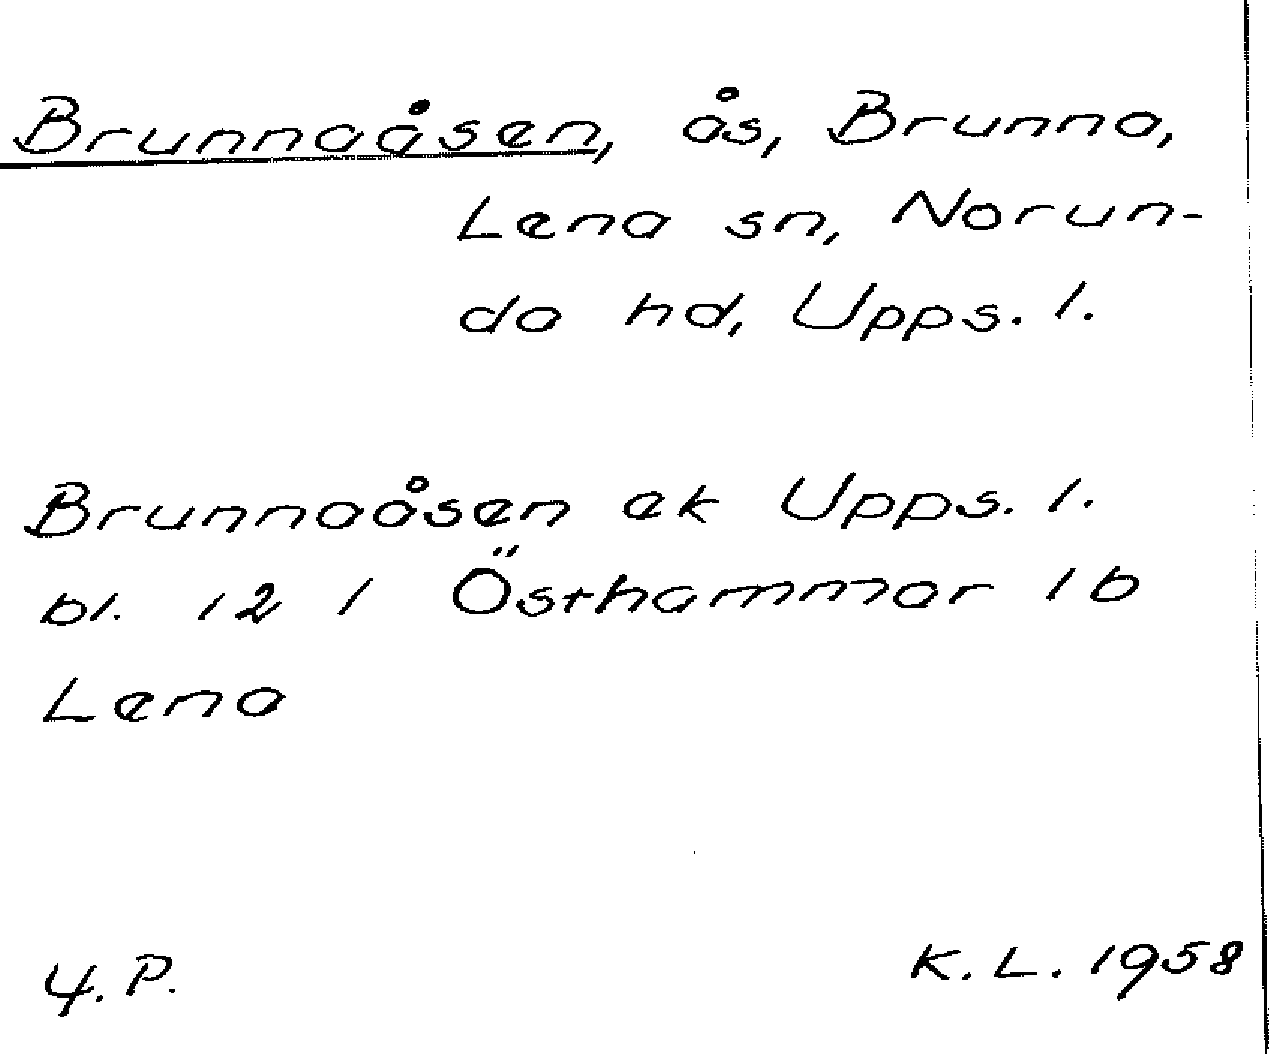 Brunnaåsen, ås, Brunna,
Lena sn, Norun-
da hd, Upps. l.
Brunnaåsen ek Upps. l.
bl. 12 1 Östhammar 1 b
Lena
4. P.
K. L. 1958